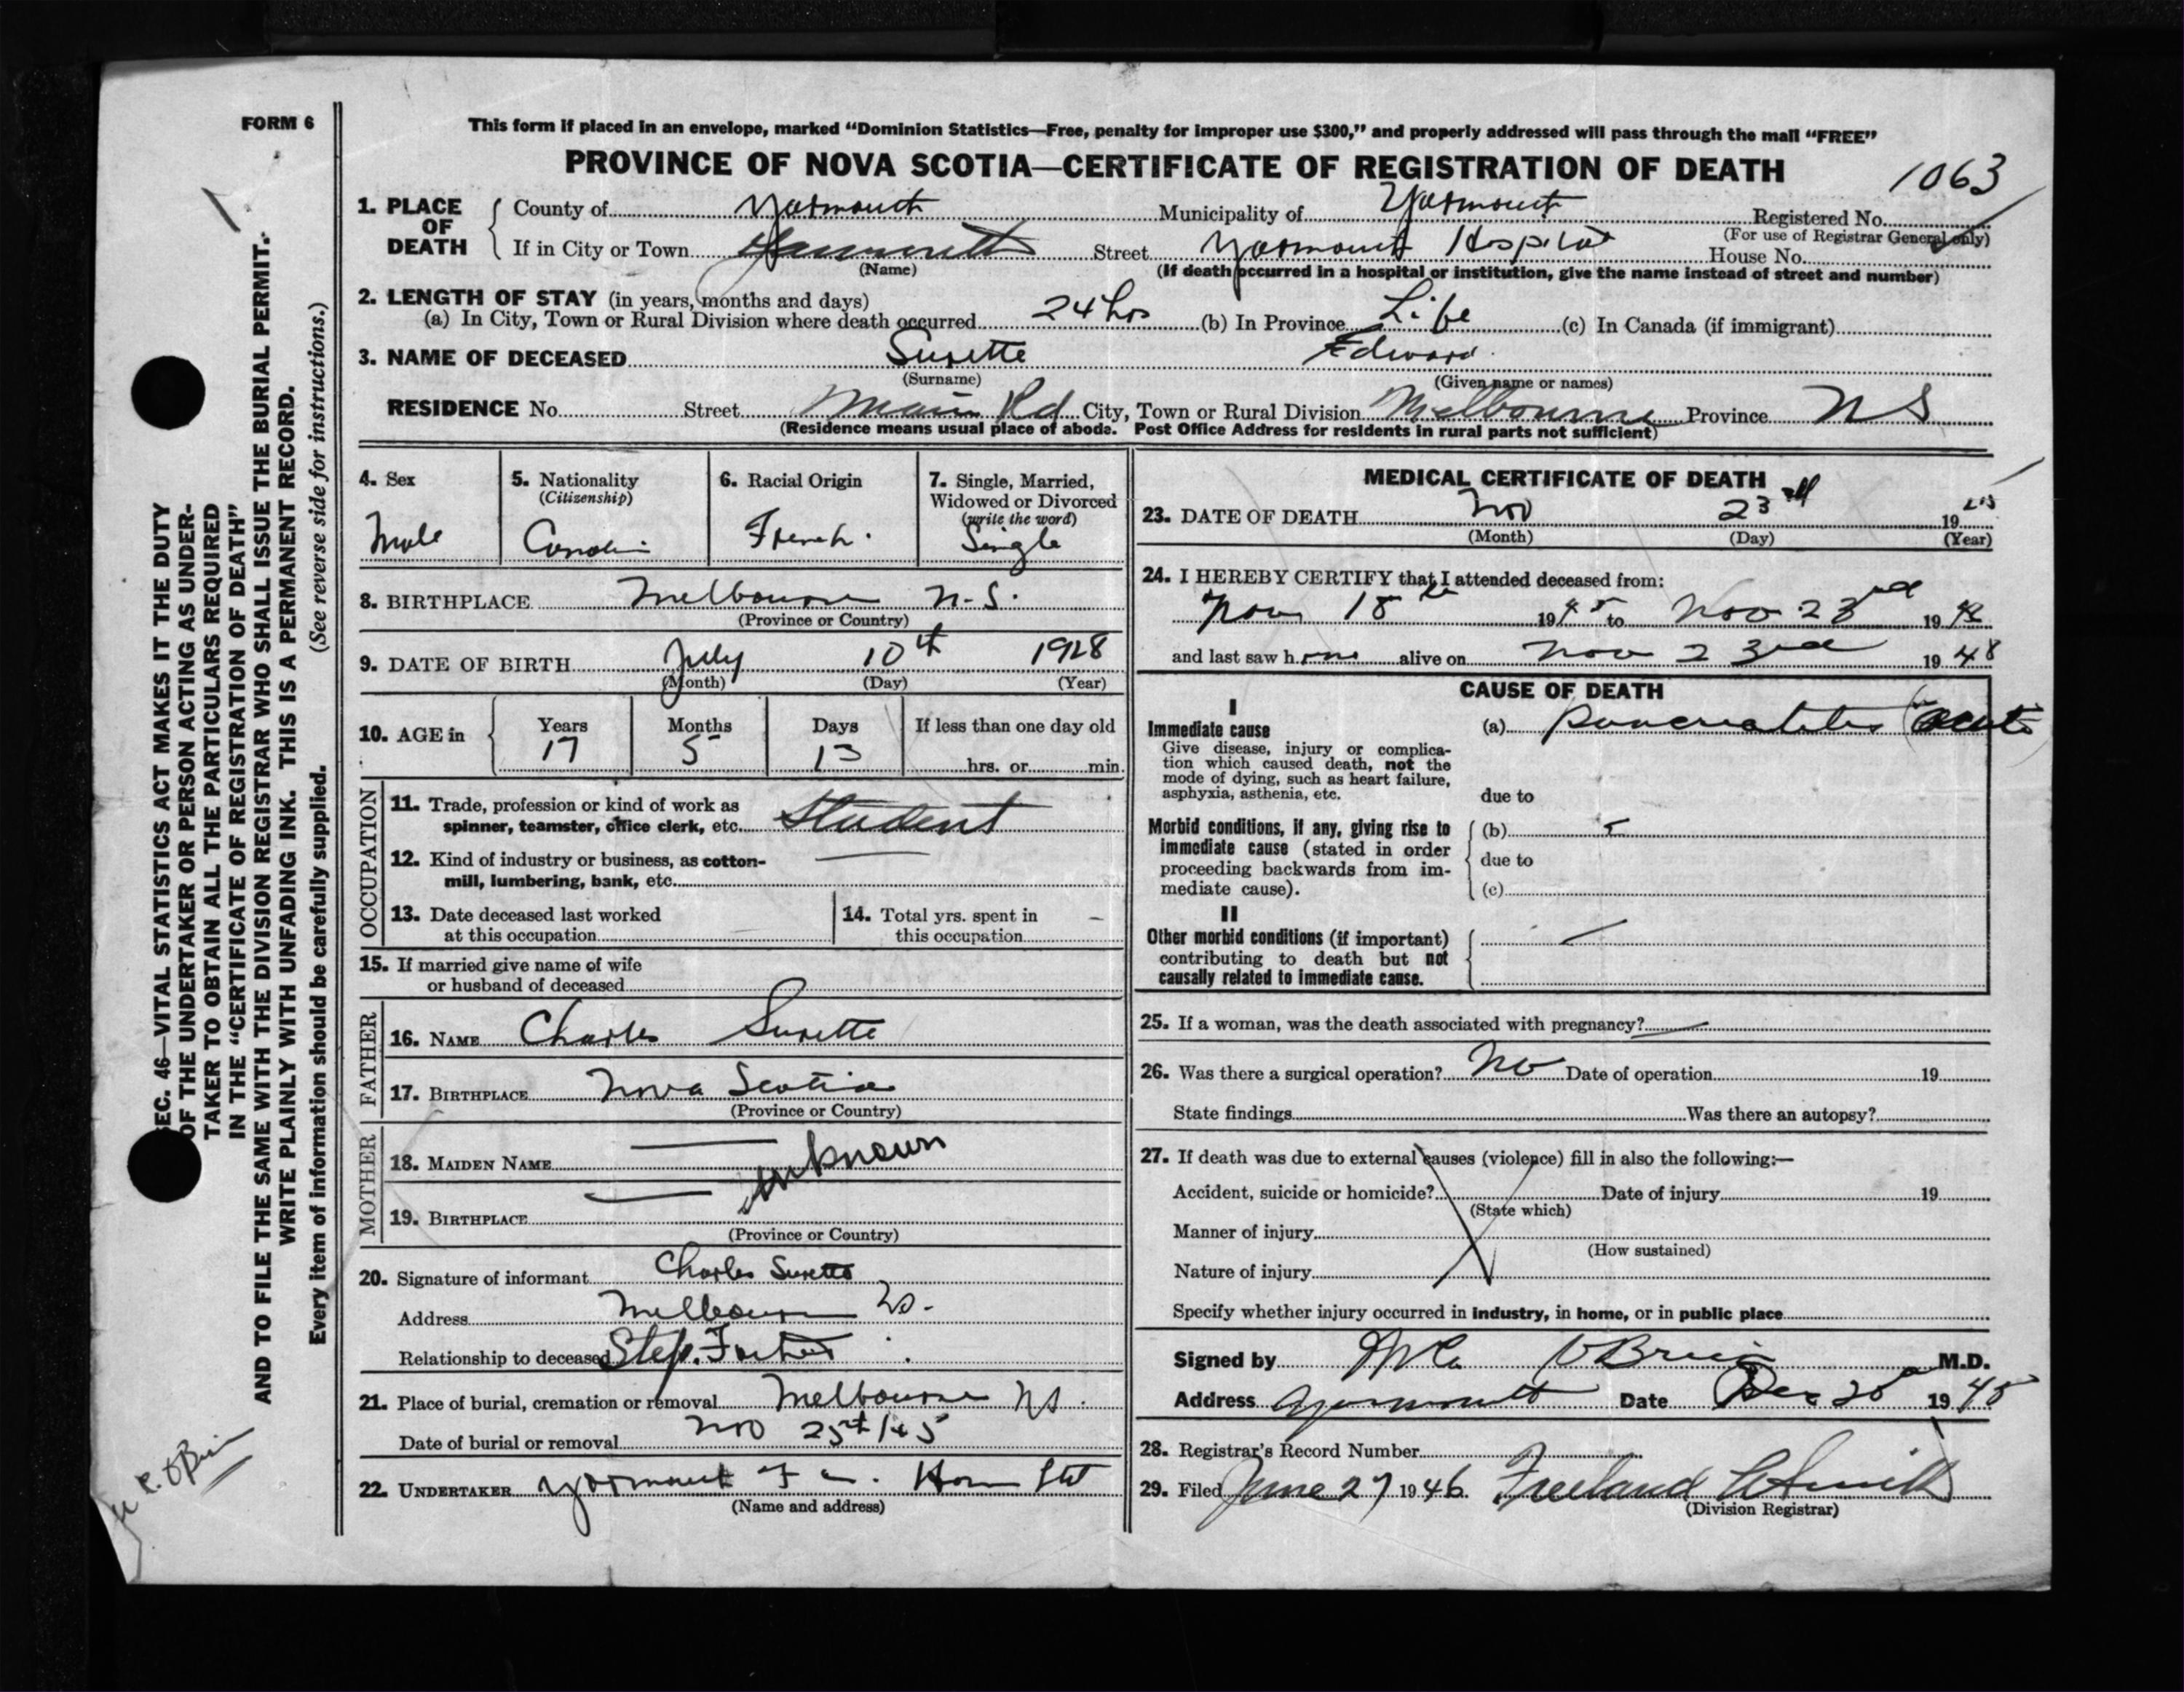 FORM 6
This form if placed in an envelope, marked “Dominion Statistics—Free, penalty for improper use $300,” and properly addressed will pass through the mail “FREE”
PROVINCE OF NOVA SCOTIA—CERTIFICATE OF REGISTRATION OF DEATH
1063
1. PLACE OF DEATH
County of Yarmouth Municipality of Yarmouth Registered No.
(For use of Registrar General only)
If in City or Town Yarmouth Street Yarmouth Hospital House No.
(Name) (If death occurred in a hospital or institution, give the name instead of street and number)
2. LENGTH OF STAY (in years, months and days)
(a) In City, Town or Rural Division where death occurred 24 hrs (b) In Province Life (c) In Canada (if immigrant)
3. NAME OF DECEASED Surette Edward
(Surname) (Given name or names)
RESIDENCE No. Street Main Rd City, Town or Rural Division Melbourne Province N S
(Residence means usual place of abode. Post Office Address for residents in rural parts not sufficient)
4. Sex
Male
5. Nationality
(Citizenship)
6. Racial Origin
French.
7. Single, Married,
Widowed or Divorced
(write the word)
Single
8. BIRTHPLACE Melbourne N.S.
(Province or Country)
9. DATE OF BIRTH July 10th 1928
(Month) (Day) (Year)
10. AGE in Years Months Days If less than one day old
17 5 13 hrs. or min.
OCCUPATION
11. Trade, profession or kind of work as
spinner, teamster, office clerk, etc. Student
12. Kind of industry or business, as cotton-
mill, lumbering, bank, etc.
13. Date deceased last worked
at this occupation
14. Total yrs. spent in
this occupation
15. If married give name of wife
or husband of deceased
FATHER
16. NAME Charles Surette
17. BIRTHPLACE Nova Scotia
(Province or Country)
MOTHER
18. MAIDEN NAME unknown
19. BIRTHPLACE
(Province or Country)
20. Signature of informant Charles Surette
Address Melbourne NS.
Relationship to deceased Step. Father
21. Place of burial, cremation or removal Melbourne NS.
Date of burial or removal Nov 25th/45
22. UNDERTAKER Yarmouth
(Name and address)
MEDICAL CERTIFICATE OF DEATH
23. DATE OF DEATH Nov 23rd 1945
(Month) (Day) (Year)
24. I HEREBY CERTIFY that I attended deceased from:
Nov 18th 1945 to Nov 23rd 19
and last saw h alive on Nov 23rd 1948
CAUSE OF DEATH
I
Immediate cause
Give disease, injury or complica-
tion which caused death, not the
mode of dying, such as heart failure,
asphyxia, asthenia, etc.
(a) pancreatitis (acute
due to
Morbid conditions, if any, giving rise to
immediate cause (stated in order
proceeding backwards from im-
mediate cause).
(b)
due to
(c)
II
Other morbid conditions (if important)
contributing to death but not
causally related to immediate cause.
25. If a woman, was the death associated with pregnancy?
26. Was there a surgical operation? No Date of operation 19
State findings Was there an autopsy?
27. If death was due to external causes (violence) fill in also the following:—
Accident, suicide or homicide? Date of injury 19
(State which)
Manner of injury
(How sustained)
Nature of injury
Specify whether injury occurred in industry, in home, or in public place
Signed by O'Brien M.D.
Address Yarmouth Date Dec 20 1945
28. Registrar's Record Number
29. Filed June 27 1946 Freeland Smith
(Division Registrar)
SEC. 46—VITAL STATISTICS ACT MAKES IT THE DUTY
OF THE UNDERTAKER OR PERSON ACTING AS UNDER-
TAKER TO OBTAIN ALL THE PARTICULARS REQUIRED
IN THE “CERTIFICATE OF REGISTRATION OF DEATH”
AND TO FILE THE SAME WITH THE DIVISION REGISTRAR WHO SHALL ISSUE THE BURIAL PERMIT.
WRITE PLAINLY WITH UNFADING INK. THIS IS A PERMANENT RECORD.
Every item of information should be carefully supplied. (See reverse side for instructions.)
O'Brien